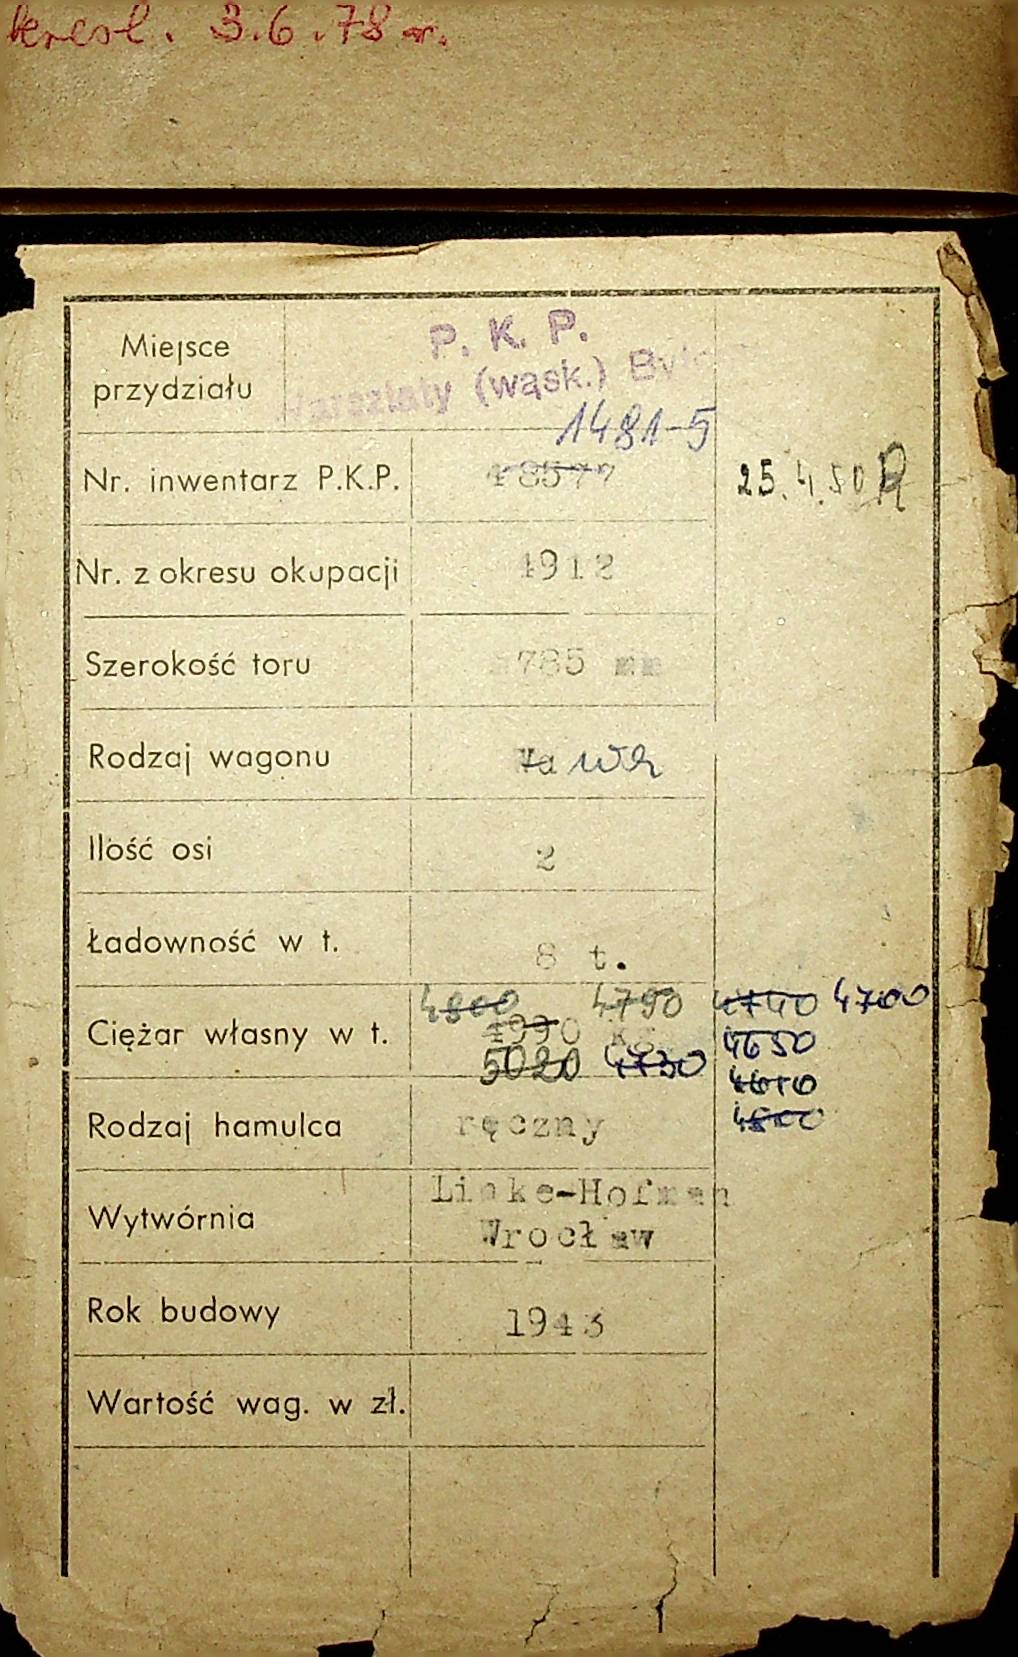 kresl. 3.6.78 r.
Miejsce przydziału
P. K. P.
Warsztaty (wąsk.)
1481-5
Nr. inwentarz P.K.P. 18577 25.4.50
Nr. z okresu okupacji 1912
Szerokość toru 785 mm
Rodzaj wagonu Wa
Ilość osi 2
Ładowność w t. 8 t.
4800 4790 4740 4700
Ciężar własny w t. 4990 kg. 4650
5020 4730
4610
4600
Rodzaj hamulca ręczny
Wytwórnia Linke-Hofman
Wrocław
Rok budowy 1943
Wartość wag. w zł.